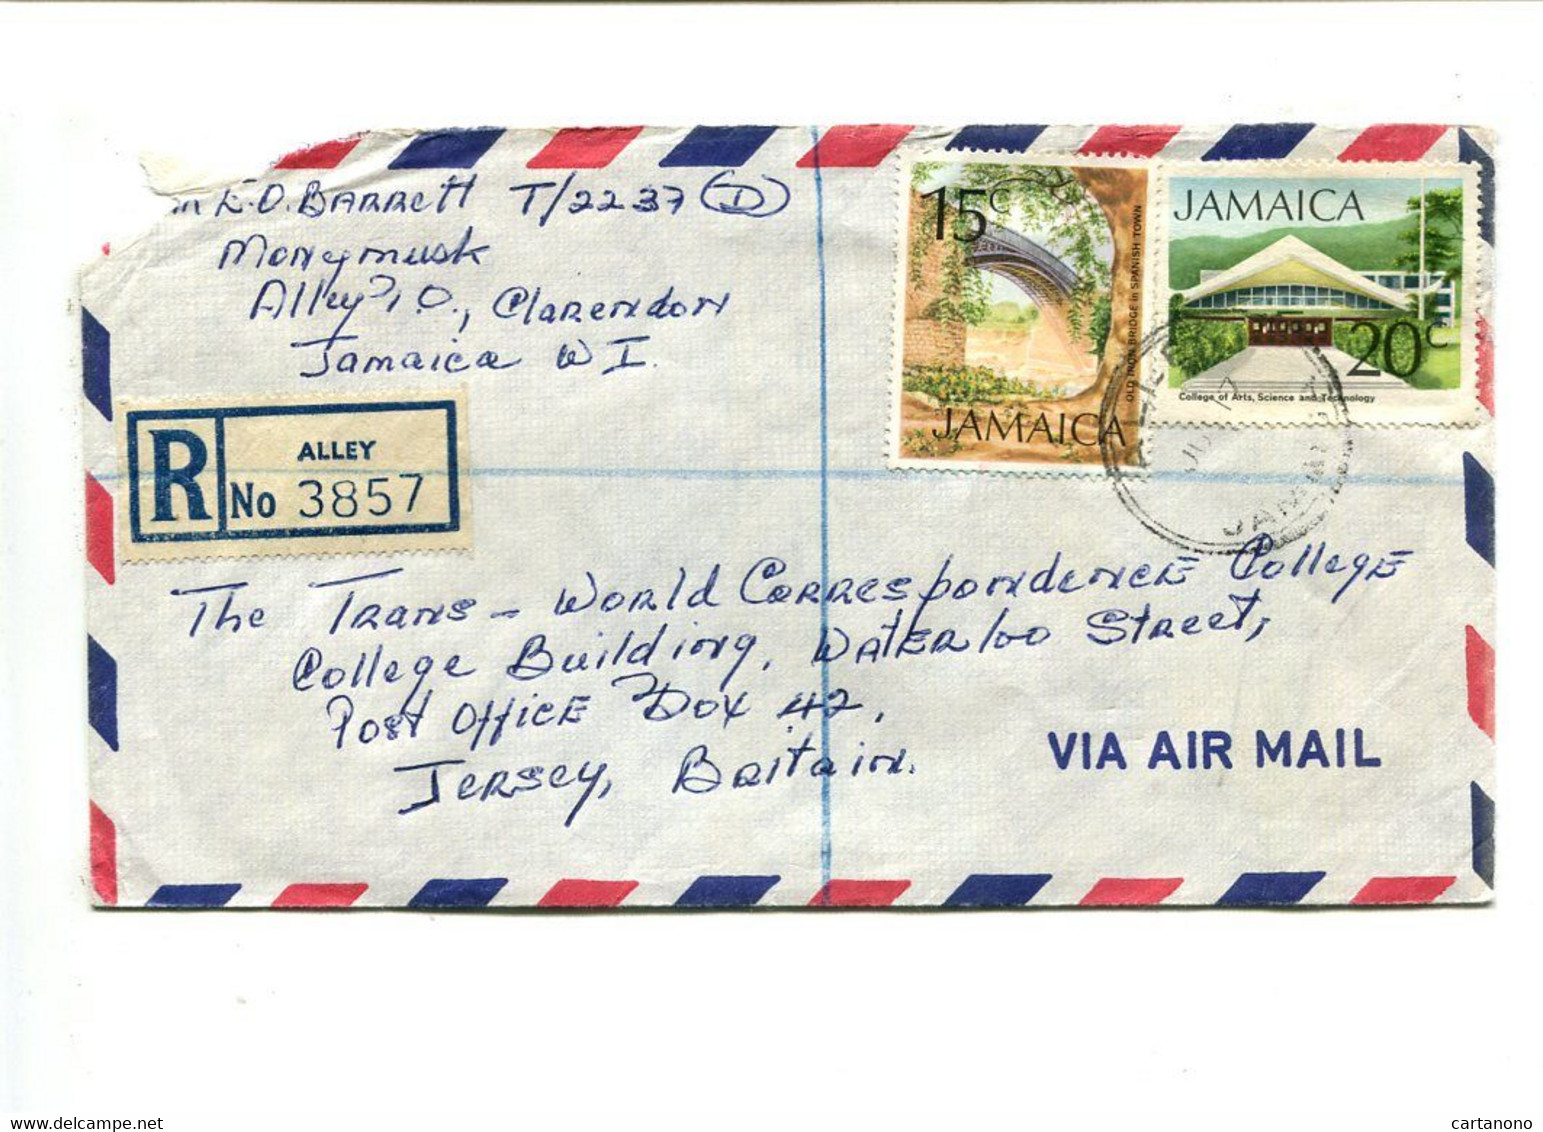 E.O. BARRETT T/2237 (D)
Monymusk
Alley P.O., Clarendon
Jamaica W I.
R
ALLEY
No 3857
15c
OLD IRON BRIDGE in SPANISH TOWN
JAMAICA
JAMAICA
20c
College of Arts, Science and Technology
JAMAICA
The Trans - World Correspondence College
College Building, Waterloo Street,
Post Office Box 42,
Jersey, Britain.
VIA AIR MAIL
delcampe.net
cartanono